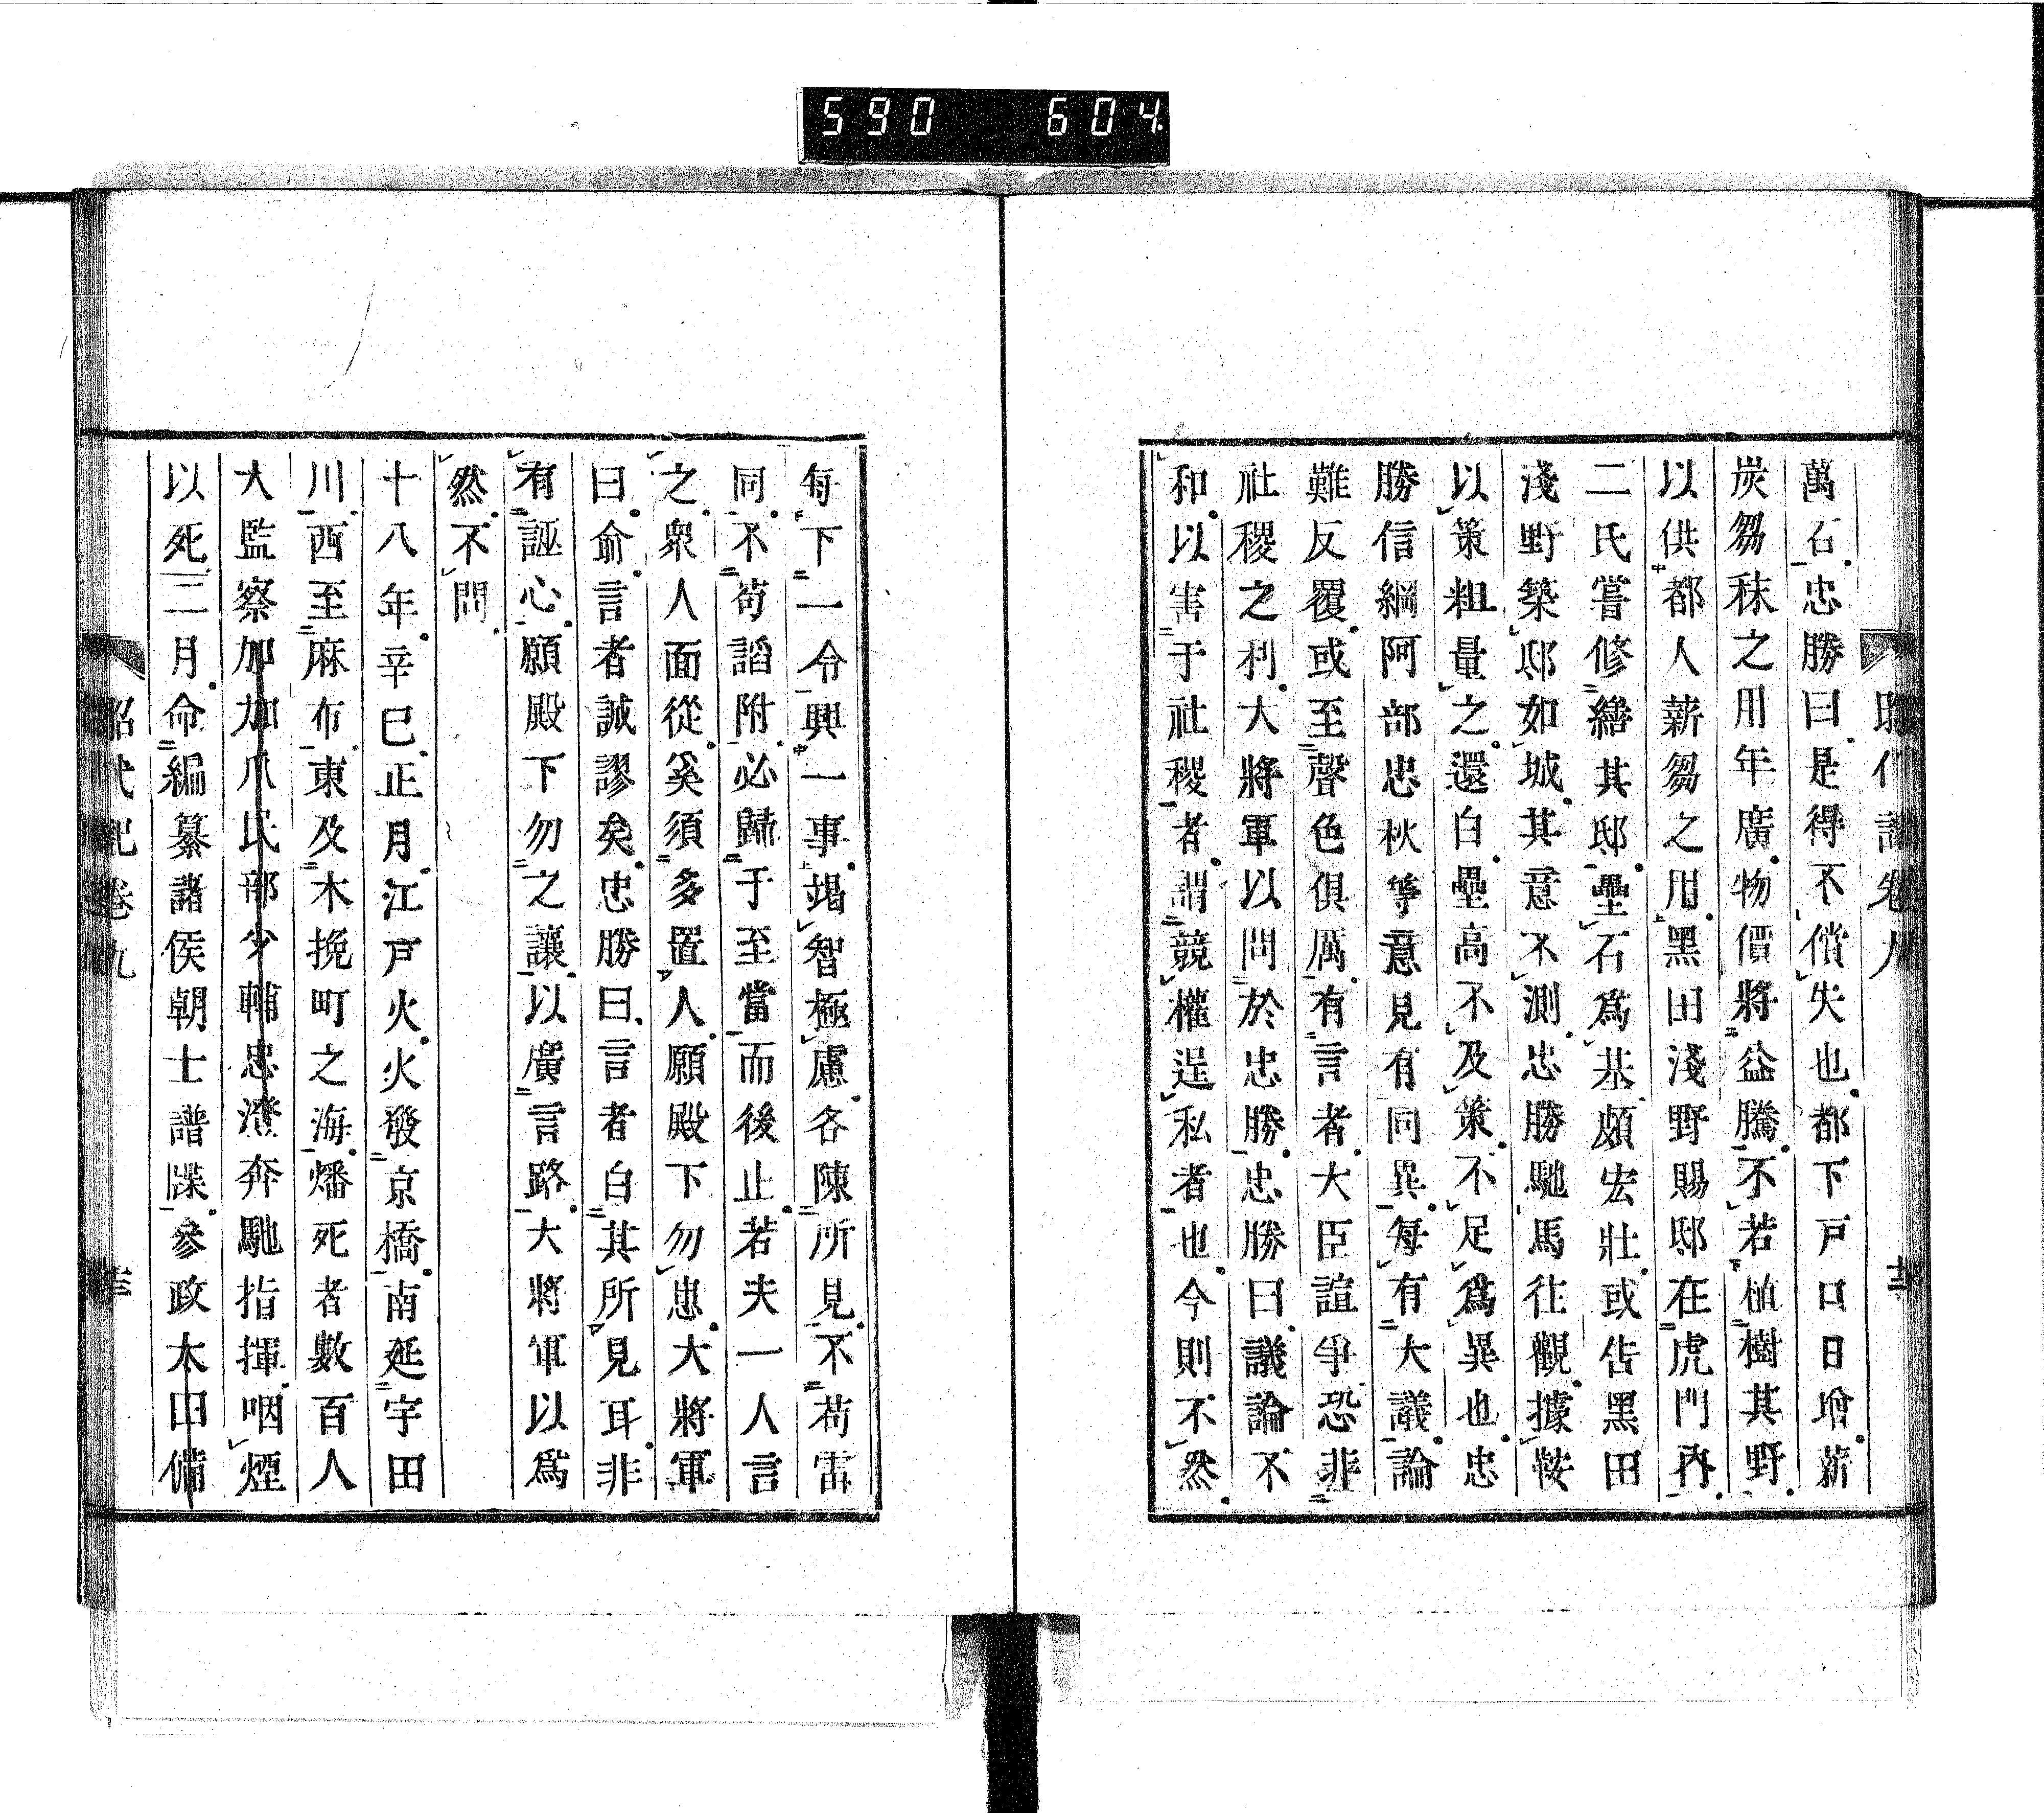 590 604
昭代記卷九
萬石忠勝曰是得不償失也都下戸口日增薪
炭芻秣之用年廣物價將益騰不若植樹其野
以供都人薪芻之用黑田淺野賜邸在虎門內
二氏嘗修繕其邸壘石爲基頗宏壯或告黑田
淺野築邸如城其意不測忠勝馳馬往觀據鞍
以策粗量之還白壘高不及策不足爲異也忠
勝信綱阿部忠秋等意見有同異每有大議論
難反覆或至聲色俱厲有言者大臣諠爭恐非
社稷之利大將軍以問於忠勝忠勝曰議論不
和以害于社稷者謂競權逞私者也今則不然
每下一令興一事竭智極慮各陳所見不苟雷
同不苟諂附必歸于至當而後止若夫一人言
之衆人面從奚須多置人願殿下勿患大將軍
曰俞言者誠謬矣忠勝曰言者白其所見耳非
有誣心願殿下勿之讓以廣言路大將軍以爲
然不問
十八年辛巳正月江戸火火發京橋南延宇田
川西至麻布東及木挽町之海燔死者數百人
大監察加加爪民部少輔忠澄奔馳指揮咽煙
以死二月命編纂諸侯朝士譜牒參政太田備
昭代記卷九